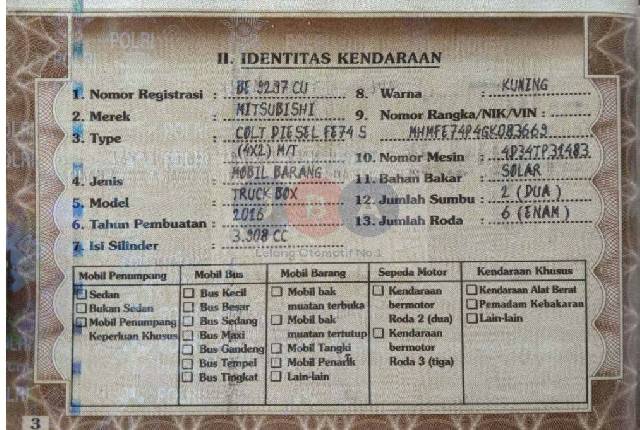 II. IDENTITAS KENDARAAN
1. Nomor Registrasi : BE 9297 CU
2. Merek : MITSUBISHI
3. Type : COLT DIESEL FE74 S
(4X2) M/T
4. Jenis : MOBIL BARANG
5. Model : TRUCK BOX
6. Tahun Pembuatan : 2016
7. Isi Silinder : 3.908 CC
8. Warna : KUNING
9. Nomor Rangka/NIK/VIN :
MHMFE74P4GK083669
10. Nomor Mesin : 4D34TP31483
11. Bahan Bakar : SOLAR
12. Jumlah Sumbu : 2 (DUA)
13. Jumlah Roda : 6 (ENAM)
Lelang Otomotif No.1
Mobil Penumpang
Sedan
Bukan Sedan
Mobil Penumpang
Keperluan Khusus
Mobil Bus
Bus Kecil
Bus Besar
Bus Sedang
Bus Maxi
Bus Gandeng
Bus Tempel
Bus Tingkat
Mobil Barang
Mobil bak
muatan terbuka
Mobil bak
muatan tertutup
Mobil Tangki
Mobil Penarik
Lain-lain
Sepeda Motor
Kendaraan
bermotor
Roda 2 (dua)
Kendaraan
bermotor
Roda 3 (tiga)
Kendaraan Khusus
Kendaraan Alat Berat
Pemadam Kebakaran
Lain-lain
3